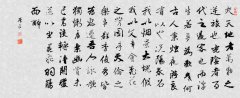 夫天地者萬物之
逆旅也光陰者百
代之過客也而浮
生若夢為歡幾何
古人秉燭夜遊良
有以也況陽春召
我以煙景大塊假
我以文章會桃花
之芳園序天倫之
樂事群季俊秀
皆為惠連吾人詠歌
獨慚康樂幽賞未
已高談轉清開瓊
筵以坐花飛羽觴
而醉